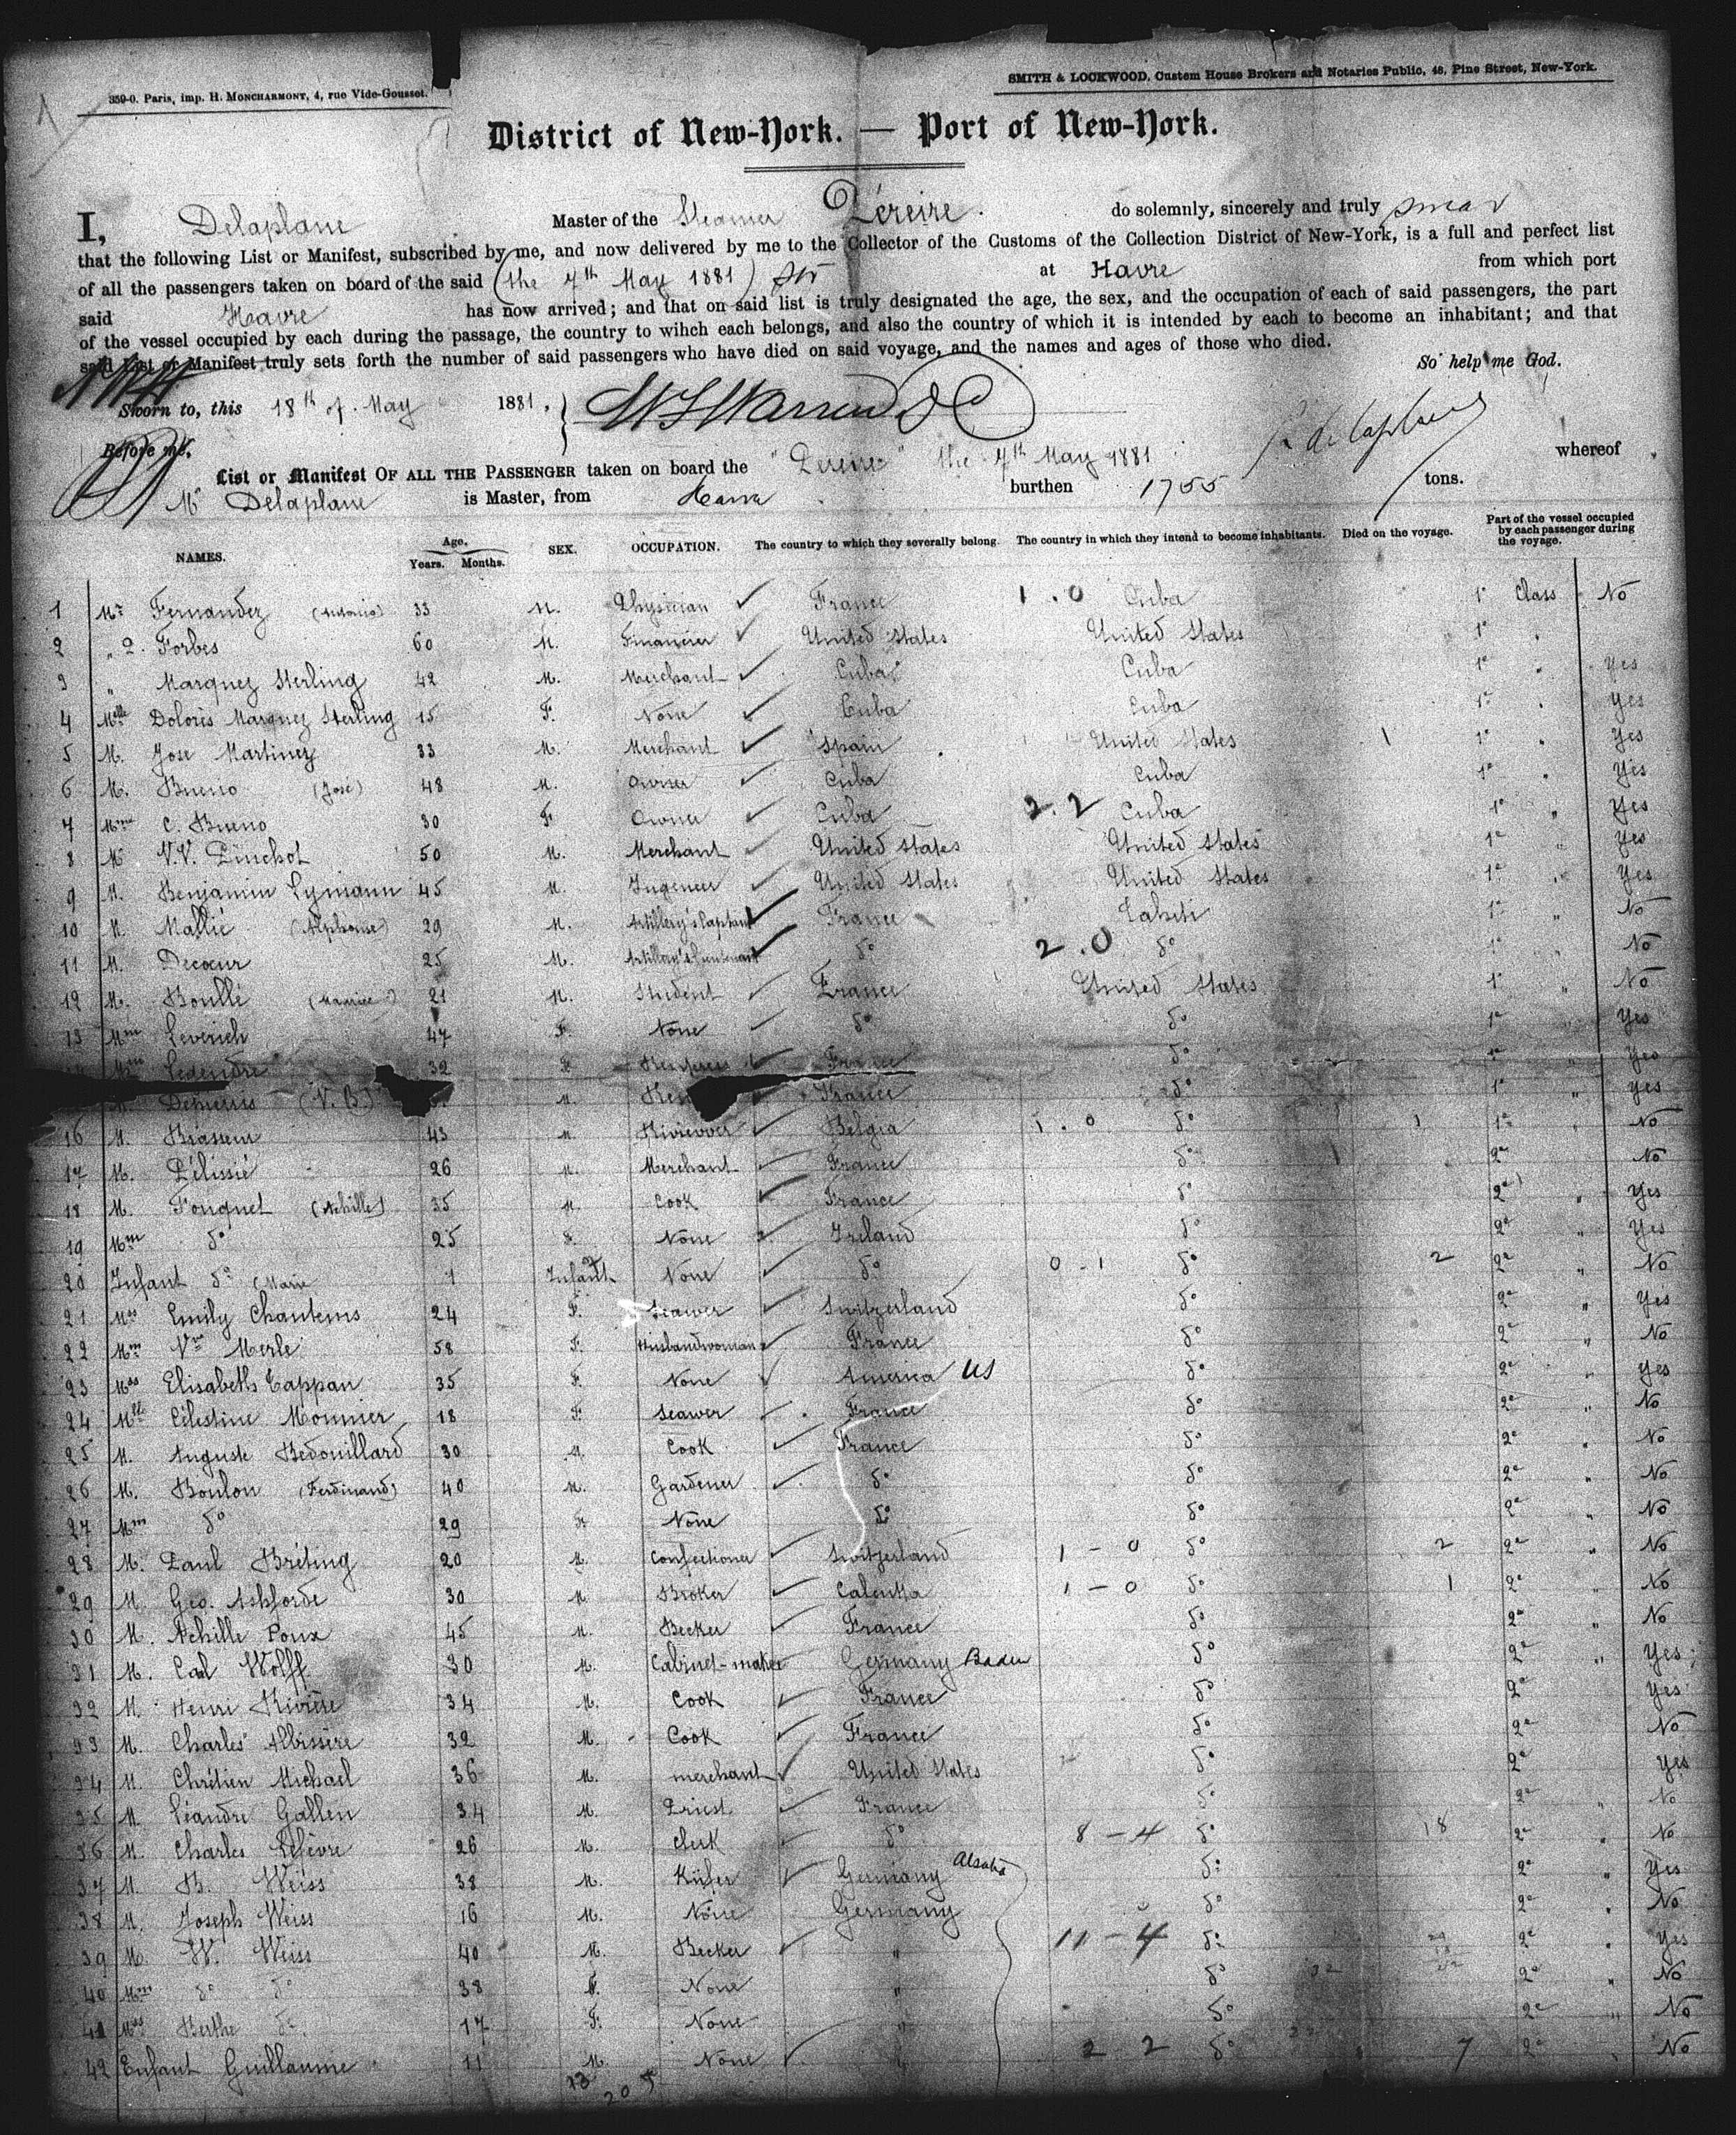 359-0. Paris, imp. H. MONCHARMONT, 4, rue Vide-Gousset.
SMITH & LOCKWOOD, Custom House Brokers and Notaries Public, 48, Pine Street, New-York.
District of New-York. — Port of New-York.
I, Delaplane Master of the Steamer Péreire. do solemnly, sincerely and truly swear
that the following List or Manifest, subscribed by me, and now delivered by me to the Collector of the Customs of the Collection District of New-York, is a full and perfect list
of all the passengers taken on board of the said (the 7th May 1881) at Havre from which port
said Havre has now arrived; and that on said list is truly designated the age, the sex, and the occupation of each of said passengers, the part
of the vessel occupied by each during the passage, the country to wihch each belongs, and also the country of which it is intended by each to become an inhabitant; and that
said List or Manifest truly sets forth the number of said passengers who have died on said voyage, and the names and ages of those who died.
So help me God.
Sworn to, this 18th of May 1881,
Before me,
List or Manifest OF ALL THE PASSENGER taken on board the "Pereire" the 7th May 1881 whereof
Mr Delaplane is Master, from Havre burthen 1755 tons.
NAMES. Age. Years. Months. SEX. OCCUPATION. The country to which they severally belong. The country in which they intend to become inhabitants. Died on the voyage. Part of the vessel occupied by each passenger during the voyage.
1 Mr Fernandez (Antonio) 33 M. Physician France 1.0 Cuba 1e Class No
2 " Forbes 60 M. Financier United States United States 1e "
3 " Marquez Sterling 42 M. Merchant Cuba Cuba 1e " Yes
4 Melle Dolores Marquez Sterling 15 F. None Cuba Cuba 1e " Yes
5 M. Jose Martinez 33 M. Merchant Spain United States 1 1e " Yes
6 M. Bueno (José) 48 M. Owner Cuba Cuba 1e " Yes
7 Mme C. Bueno 30 F Owner Cuba 2.2 Cuba 1e " Yes
8 M V.V. Pinchot 50 M. Merchant United States United States 1e " Yes
9 M. Benjamin Lymann 45 M. Ingeneer United States United States 1e " Yes
10 M. Mallié (Alphonse) 29 M. Artillery's Captain France Tahiti 1e " No
11 M. Decœur 25 M. Artillery's Lieutenant do 2.0 do 1e " No
12 M. Boullé (Maurice) 21 M. Student France United States 1e " No
13 Mme Leverich 47 F. None do do 1e " Yes
Mme Legendre 32 F France do 1e " Yes
M. (V. B.) M. France do 1e " Yes
16 M. Brasseur 43 M. Belgia 1.0 do 1 1e " No
17 M. Pélissié 26 M. Merchant France do 2e No
18 M. Fouquet (Achille) 35 M. Cook France do 2e " Yes
19 Mme do 25 F. None Ireland do 2e " Yes
20 Infant do (Marie 1 Infant None do 0-1 do 2 2e " No
21 Mss Emily Chantems 24 F. Seawer Switzerland do 2e " Yes
22 Mme Vve Merle 58 F. Husbandwoman France do 2e " No
23 Mss Elisabeth Tappan 35 F. None America US do 2e " Yes
24 Mlle Célestine Monnier 18 F. Seawer France do 2e " No
25 M. Auguste Bedouillard 30 M. Cook France do 2e " No
26 M. Boulon (Ferdinand) 40 M. Gardener do do 2e " No
27 Mme do 29 F. None do do 2e " No
28 M. Paul Bréting 20 M. Confectioner Switzerland 1-0 do 2 2e " No
29 M. Geo. Ashforde 30 M Broker Calcutta 1-0 do 1 2e " No
30 M. Achille Poux 45 M. Becker France do 2e " No
31 M. Carl Wolff 30 M. Cabinet-maker Germany Baden do 2e " Yes
32 M. Henri Rivière 34 M. Cook France do 2e " Yes
33 M. Charles Albissère 32 M. Cook France do 2e " No
34 M. Chrétien Michael 36 M. merchant United States do 2e Yes
35 M. Léandre Gallen 34 M. Priest France do 2e " No
36 M. Charles Lefèvre 26 M. Clerk do 8-4 do 18 2e " No
37 M. B. Weiss 38 M. Küfer Germany Alsatia do 2e " Yes
38 M. Joseph Weiss 16 M. None Germany do 2e " No
39 M. W. Weiss 40 M. Becker " 11-4 do 2e " Yes
40 Mme do do 38 F. None " do 2e " No
41 Mss Berthe do 17 F. None " do 2e " No
42 Enfant Guillaume 11 M. None " 2 2 do 7 2e " No